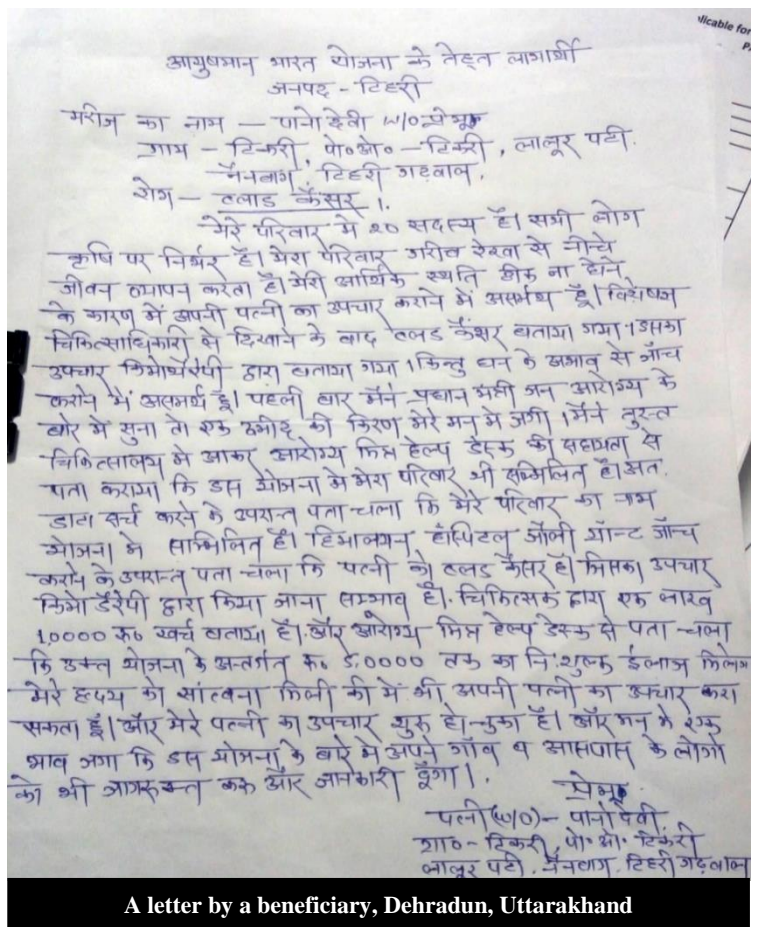 licable for
P
आयुषमान भारत योजना के तेहत लाभार्थी
जनपद - टिहरी
मरीज का नाम - पानो देवी W/O प्रेमू
ग्राम - टिकरी, पो०ओ० - टिकरी, लालूर पटी.
नैनबाग, टिहरी गढ़वाल.
रोग - ब्लाड कैंसर ।.
मेरे परिवार मे 20 सदस्य है। सभी लोग
कृषि पर निर्भर हैं। मेरा परिवार गरीब रेखा से नीचे
जीवन व्यापन करता है। मेरी आर्थिक स्थति ठीक ना होने
के कारण में अपनी पत्नी का उपचार कराने में असमर्थ हूँ।
चिकित्साधिकारी से दिखाने के बाद ब्लड कैंशर बताया गया। इसका
उपचार किमोथैरेपी द्वारा बताया गया। किन्तु धन के अभाव से जाँच
कराने में असमर्थ हूं। पहली बार मैंने प्रधान मंत्री जन आरोग्य के
बारे में सुना तो एक उमीद की किरण मेरे मन मे जगी। मैंने तुरन्त
चिकित्सालय मे आकर आरोग्य मित्र हेल्प डेस्क की सहायता से
पता कराया कि इस योजना मे मेरा परिवार भी सम्मिलित है। अत.
डाटा सर्च करने के उपरान्त पता चला कि मेरे परिवार का नाम
योजना मे साम्मिलित है। हिमालयन हॉस्पिटल जौली ग्रॉन्ट जॉच
कराने के उपरान्त पता चला कि पत्नी को ब्लड कैंसर है। जिसका उपचार
किमो डैरेपी द्वारा किया जाना सम्भाव है। चिकित्सक द्वारा एक लाख
1,0000 रू० खर्च बताया है. और आरोग्य मित्र हेल्प डेस्क से पता चला
कि उक्त योजना के अन्तर्गत रू. 5,0000 तक का नि:शुल्क ईलाज मिलेगा
मेरे हृदय को सांत्वना मिली की में भी अपनी पत्नी का उपचार करा
सकता हूं। और मेरे पत्नी का उपचार शुरू हो चुका है। और मन मे एक
भाव जगा कि इस योजना के बारे मे अपने गाँव व आसपास के लोगो
को भी जागरूक्त करू और जानकारी दूँगा।.
प्रेमू
पत्नी (W/O) - पानो देवी.
ग्रा० - टिकरी, पो० ओ. टिकरी
लालूर पटी, नैनबाग, टिहरी गढ़वाल
A letter by a beneficiary, Dehradun, Uttarakhand